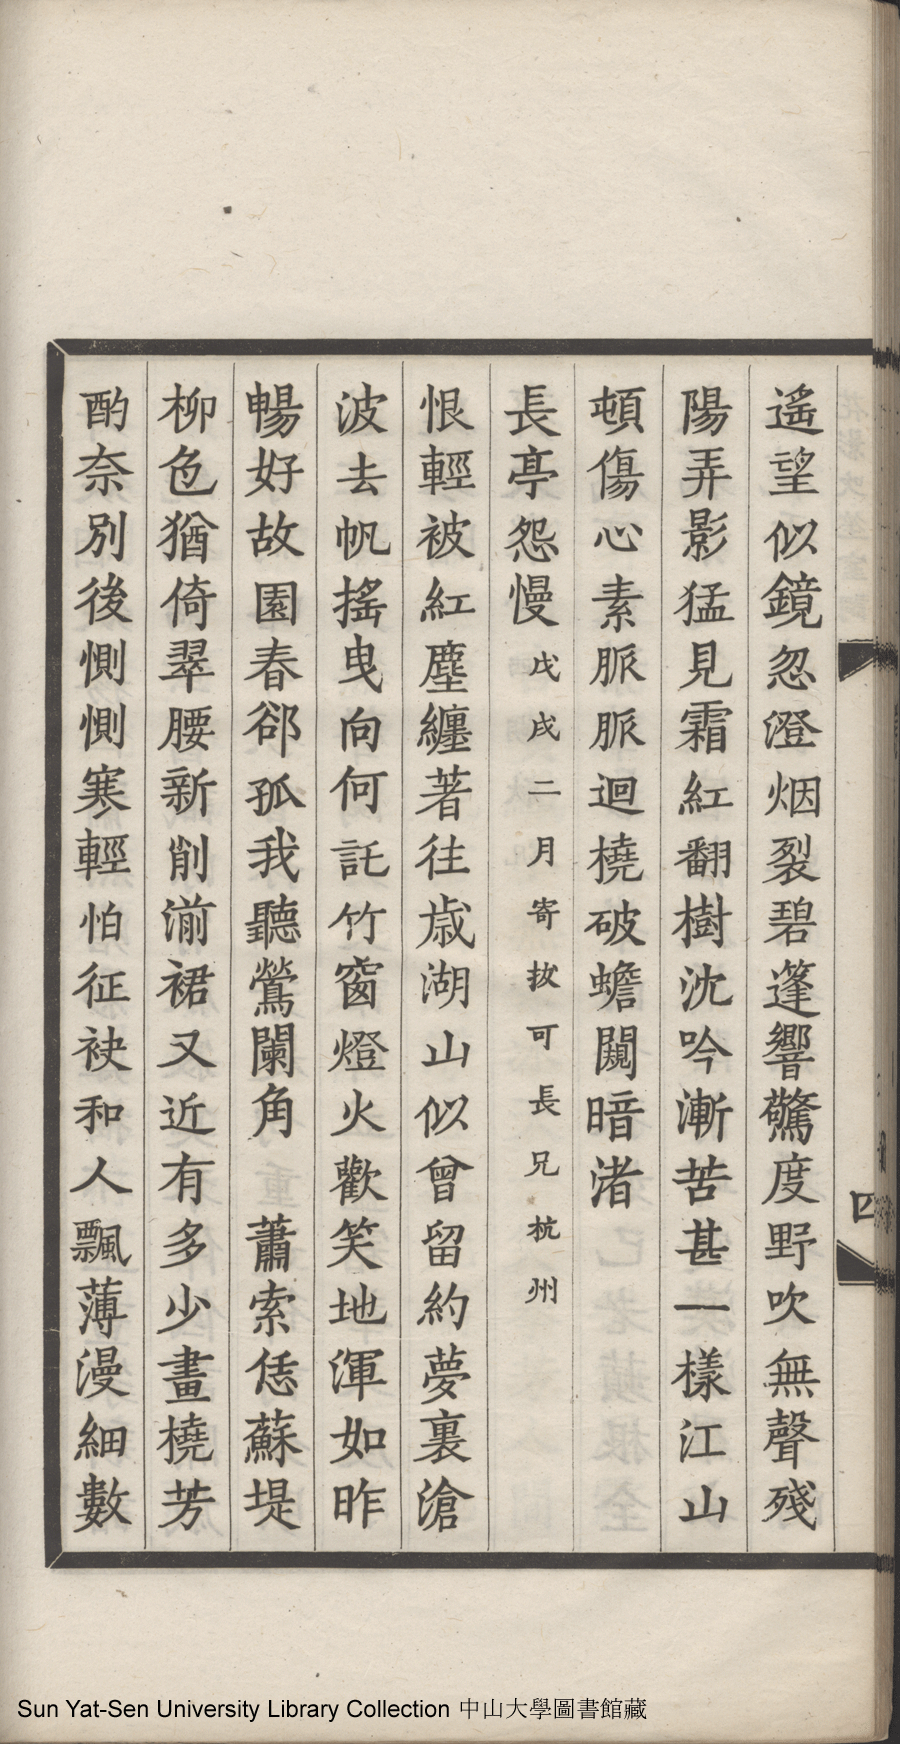 遙望似鏡忽澄烟裂碧蓬響驚度野吹無聲殘
陽弄影猛見霜紅翻樹沈吟漸苦甚一樣江山
頓傷心素脈脈迴橈破蟾闚暗渚
長亭怨慢 戊戌二月寄拔可長兄杭州
恨輕被紅塵纏著往歲湖山似曾留約夢裏滄
波去帆搖曳向何託竹窗燈火歡笑地渾如昨
暢好故園春郤孤我聽鶯闌角 蕭索恁蘇堤
柳色猶倚翠腰新削湔裙又近有多少畫橈芳
酌奈別後惻惻寒輕怕征袂和人飄薄漫細數
四
Sun Yat-Sen University Library Collection 中山大學圖書館藏